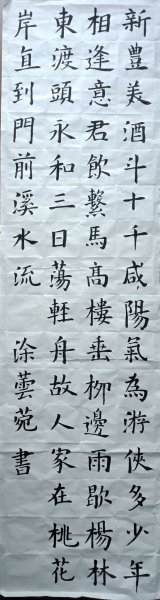 新豐美酒斗十千咸陽氣為游俠多少年
相逢意君飲繫馬高樓垂柳邊雨歇楊林
東渡頭永和三日蕩輕舟故人家在桃花
岸直到門前溪水流 涂蕓菀 書